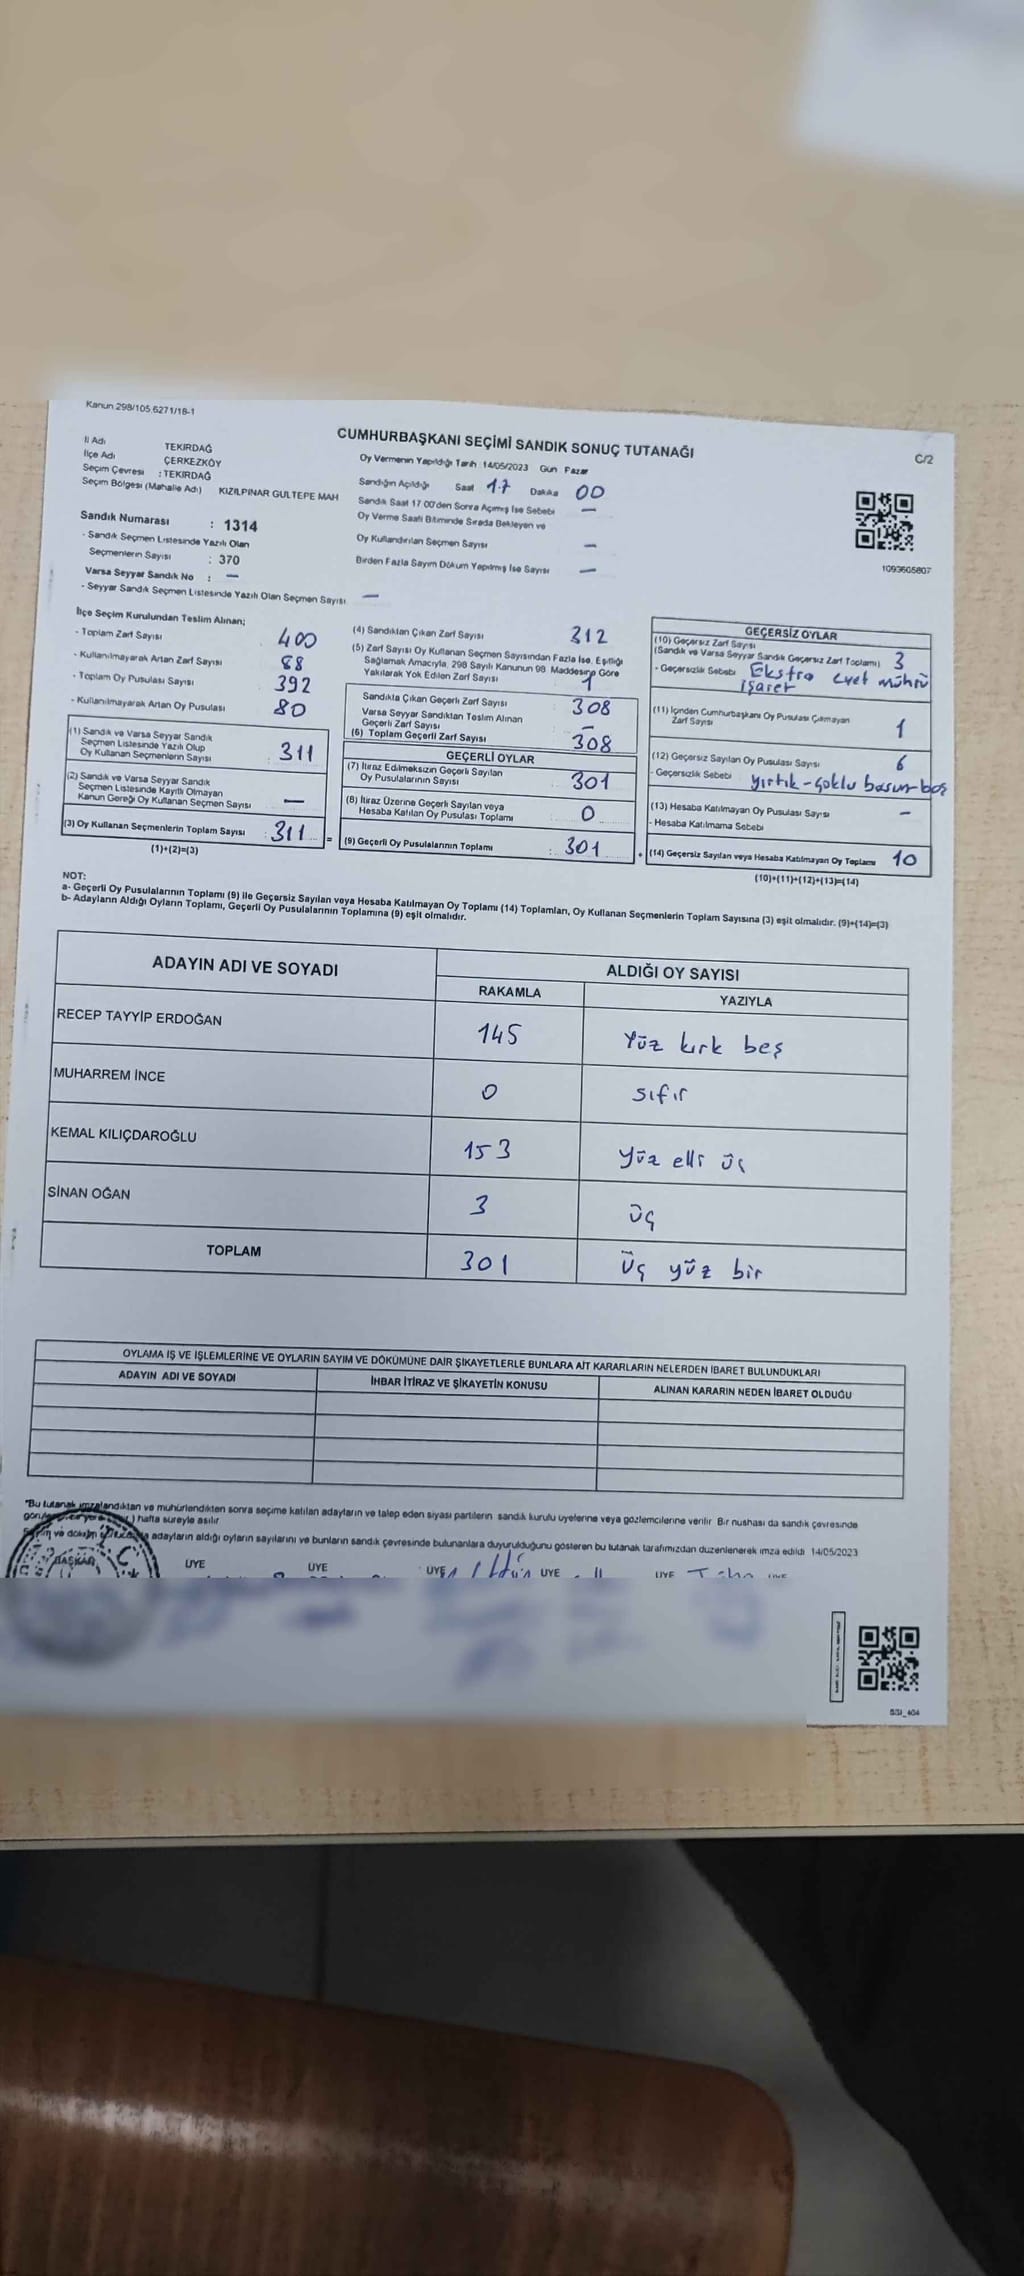 Kanun 298/105,6271/18-1
CUMHURBAŞKANI SEÇİMİ SANDIK SONUÇ TUTANAĞI
C/2
İl Adı TEKİRDAĞ
İlçe Adı ÇERKEZKÖY
Seçim Çevresi : TEKİRDAĞ
Seçim Bölgesi (Mahalle Adı) KIZILPINAR GÜLTEPE MAH
Sandık Numarası : 1314
- Sandık Seçmen Listesinde Yazılı Olan
Seçmenlerin Sayısı : 370
Varsa Seyyar Sandık No : –
- Seyyar Sandık Seçmen Listesinde Yazılı Olan Seçmen Sayısı –
Oy Vermenin Yapıldığı Tarih 14/05/2023 Gün Pazar
Sandığın Açıldığı Saat 17 Dakika 00
Sandık Saat 17 00'den Sonra Açımış İse Sebebi –
Oy Verme Saati Bitiminde Sırada Bekleyen ve
Oy Kullandırılan Seçmen Sayısı –
Birden Fazla Sayım Döküm Yapılmış İse Sayısı –
1093605807
İlçe Seçim Kurulundan Teslim Alınan;
- Toplam Zarf Sayısı 400
- Kullanılmayarak Artan Zarf Sayısı 88
- Toplam Oy Pusulası Sayısı 392
- Kullanılmayarak Artan Oy Pusulası 80
(1) Sandık ve Varsa Seyyar Sandık
Seçmen Listesinde Yazılı Olup
Oy Kullanan Seçmenlerin Sayısı : 311
(2) Sandık ve Varsa Seyyar Sandık
Seçmen Listesinde Kayıtlı Olmayan
Kanun Gereği Oy Kullanan Seçmen Sayısı –
(3) Oy Kullanan Seçmenlerin Toplam Sayısı : 311 =
(1)+(2)=(3)
(4) Sandıktan Çıkan Zarf Sayısı 312
(5) Zarf Sayısı Oy Kullanan Seçmen Sayısından Fazla İse, Eşitliği
Sağlamak Amacıyla, 298 Sayılı Kanunun 98 Maddesine Göre
Yakılarak Yok Edilen Zarf Sayısı 1
Sandıkta Çıkan Geçerli Zarf Sayısı 308
Varsa Seyyar Sandıktan Teslim Alınan
Geçerli Zarf Sayısı –
(6) Toplam Geçerli Zarf Sayısı 308
GEÇERLİ OYLAR
(7) İtiraz Edilmeksizin Geçerli Sayılan
Oy Pusulalarının Sayısı 301
(8) İtiraz Üzerine Geçerli Sayılan veya
Hesaba Katılan Oy Pusulası Toplamı 0
(9) Geçerli Oy Pusulalarının Toplamı : 301 +
GEÇERSİZ OYLAR
(10) Geçersiz Zarf Sayısı
(Sandık ve Varsa Seyyar Sandık Geçersiz Zarf Toplamı) 3
- Geçersizlik Sebebi Ekstra evet mührü
işaret
(11) İçinden Cumhurbaşkanı Oy Pusulası Çıkmayan
Zarf Sayısı 1
(12) Geçersiz Sayılan Oy Pusulası Sayısı 6
- Geçersizlik Sebebi yırtık-çoklu basım-boş
(13) Hesaba Katılmayan Oy Pusulası Sayısı –
- Hesaba Katılmama Sebebi
(14) Geçersiz Sayılan veya Hesaba Katılmayan Oy Toplamı 10
(10)+(11)+(12)+(13)=(14)
NOT:
a- Geçerli Oy Pusulalarının Toplamı (9) ile Geçersiz Sayılan veya Hesaba Katılmayan Oy Toplamı (14) Toplamları, Oy Kullanan Seçmenlerin Toplam Sayısına (3) eşit olmalıdır. (9)+(14)=(3)
b- Adayların Aldığı Oyların Toplamı, Geçerli Oy Pusulalarının Toplamına (9) eşit olmalıdır.
ADAYIN ADI VE SOYADI ALDIĞI OY SAYISI
RAKAMLA YAZIYLA
RECEP TAYYİP ERDOĞAN 145 Yüz kırk beş
MUHARREM İNCE 0 sıfır
KEMAL KILIÇDAROĞLU 153 yüz elli üç
SİNAN OĞAN 3 üç
TOPLAM 301 Üç yüz bir
OYLAMA İŞ VE İŞLEMLERİNE VE OYLARIN SAYIM VE DÖKÜMÜNE DAİR ŞİKAYETLERLE BUNLARA AİT KARARLARIN NELERDEN İBARET BULUNDUKLARI
ADAYIN ADI VE SOYADI İHBAR İTİRAZ VE ŞİKAYETİN KONUSU ALINAN KARARIN NEDEN İBARET OLDUĞU
"Bu tutanak imzalandıktan ve mühürlendikten sonra seçime katılan adayların ve talep eden siyasi partilerin sandık kurulu üyelerine veya gözlemcilerine verilir Bir nüshası da sandık çevresinde
) hafta süreyle asılır
adayların aldığı oyların sayılarını ve bunların sandık çevresinde bulunanlara duyurulduğunu gösteren bu tutanak tarafımızdan düzenlenerek imza edildi 14/05/2023
BAŞKAN ÜYE ÜYE ÜYE ÜYE ÜYE
SSI_404